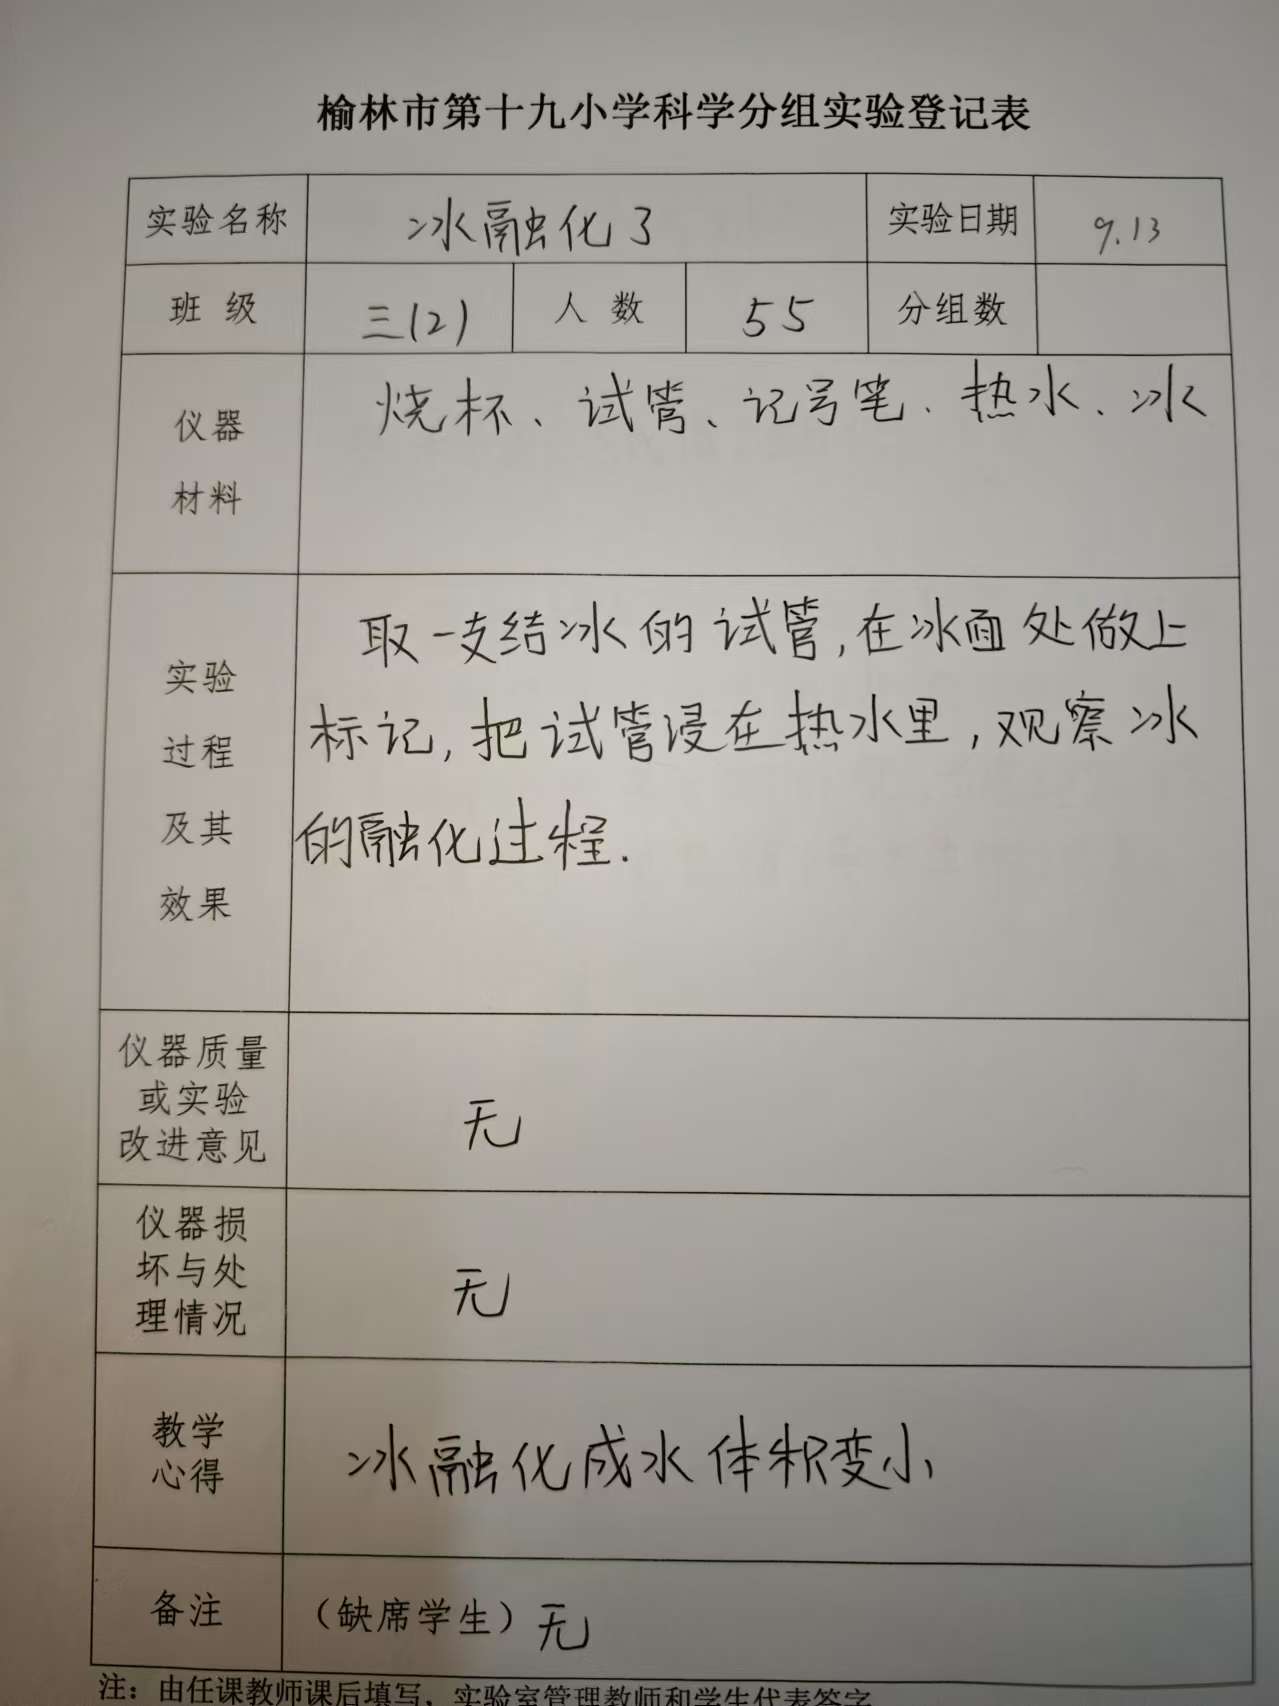 榆林市第十九小学科学分组实验登记表
实验名称 冰融化了 实验日期 9.13
班 级 三(2) 人 数 55 分组数
仪器
材料
烧杯、试管、记号笔、热水、冰
实验
过程
及其
效果
取一支结冰的试管,在冰面处做上
标记,把试管浸在热水里,观察冰
的融化过程.
仪器质量
或实验
改进意见
无
仪器损
坏与处
理情况
无
教学
心得
冰融化成水体积变小
备注 （缺席学生）无
注：由任课教师课后填写，实验室管理教师和学生代表签字